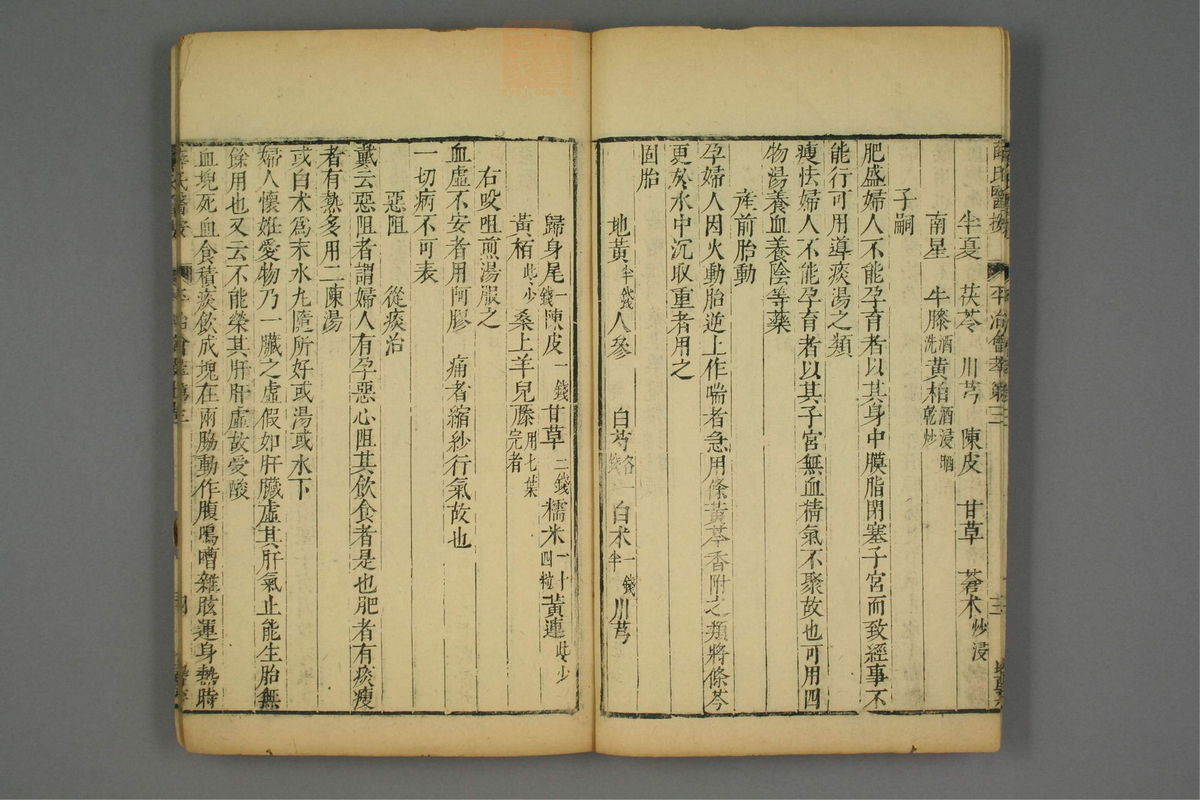 薛氏醫按 平治會萃卷三
半夏 茯苓 川芎 陳皮 甘草 蒼术炒浸
南星 牛膝酒洗 黃柏酒浸晒乾炒
子嗣
肥盛婦人不能孕育者以其身中膜脂閉塞子宮而致經事不
能行可用導痰湯之類
瘦怯婦人不能孕育者以其子宮無血精氣不聚故也可用四
物湯養血養陰等藥
產前胎動
孕婦人因火動胎逆上作喘者急用條黃芩香附之類將條芩
更於水中沉取重者用之
固胎
地黃半錢 人參 白芍各一錢 白术一錢半 川芎
歸身尾一錢 陳皮一錢 甘草二錢 糯米一十四粒 黃連些少
黃栢些少 桑上羊兒藤用七葉完者
右㕮咀煎湯服之
血虛不安者用阿膠 痛者縮紗行氣故也
一切病不可表
惡阻 從痰治
戴云惡阻者謂婦人有孕惡心阻其飲食者是也肥者有痰瘦
者有熱多用二陳湯
或白术爲末水丸隨所好或湯或水下
婦人懷姙愛物乃一臟之虛假如肝臟虛其肝氣止能生胎無
餘用也又云不能榮其肝肝虛故愛酸
血塊死血食積痰飲成塊在兩脇動作腹鳴嘈雜眩運身熱時